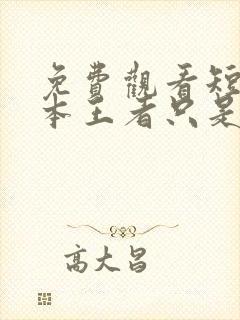 免費觀看短
本王者只是
高大昌